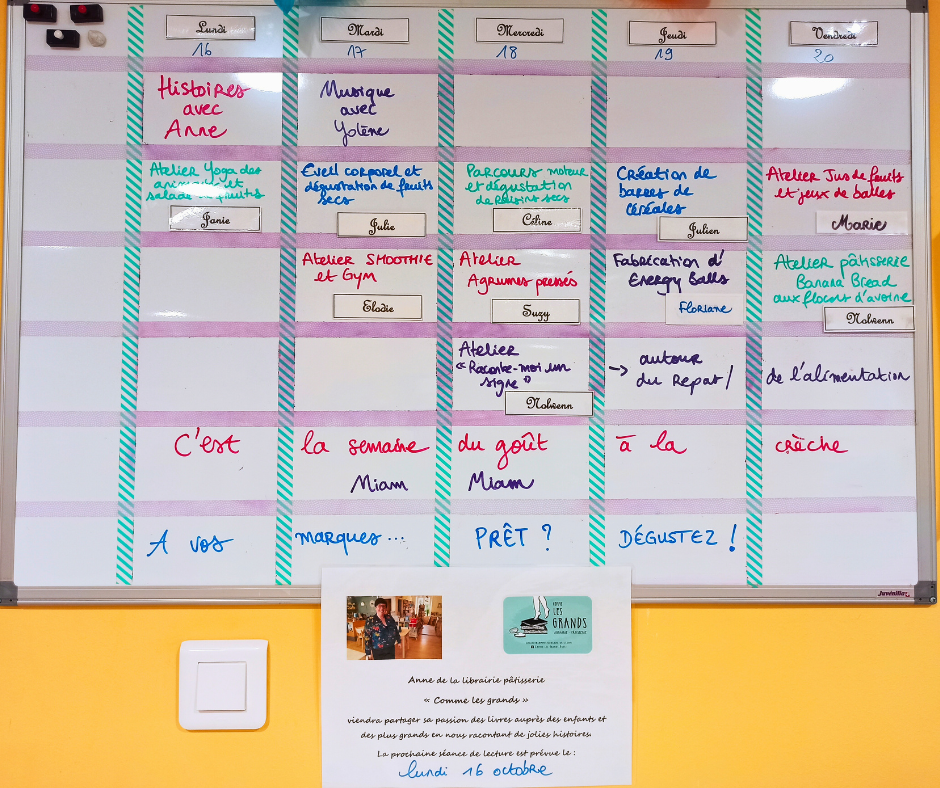 Lundi
Mardi
Mercredi
Jeudi
Vendredi
16
17
18
19
20
Histoires
avec
Anne
Musique
avec
Yolène
Atelier Yoga des
animaux et
salade de fruits
Janie
Eveil corporel et
dégustation de fruits
secs
Julie
Parcours moteur
et dégustation
de raisins secs
Céline
Création de
barres de
céréales
Julien
Atelier Jus de fruits
et jeux de balles
Marie
Atelier SMOOTHIE
et Gym
Elodie
Atelier
Agrumes pressés
Suzy
Fabrication d'
Energy Balls
Floriane
Atelier pâtisserie
Banana Bread
aux flocons d'avoine
Nolwenn
Atelier
"Raconte-moi un
signe"
Nolwenn
→ autour
du Repas /
de l'alimentation
C'est
la semaine
du goût
à la
crèche
Miam
Miam
A vos
marques...
PRÊT ?
DÉGUSTEZ !
LES
GRANDS
Anne de la librairie pâtisserie
« Comme les grands »
viendra partager sa passion des livres auprès des enfants et
des plus grands en nous racontant de jolies histoires.
La prochaine séance de lecture est prévue le :
lundi 16 octobre